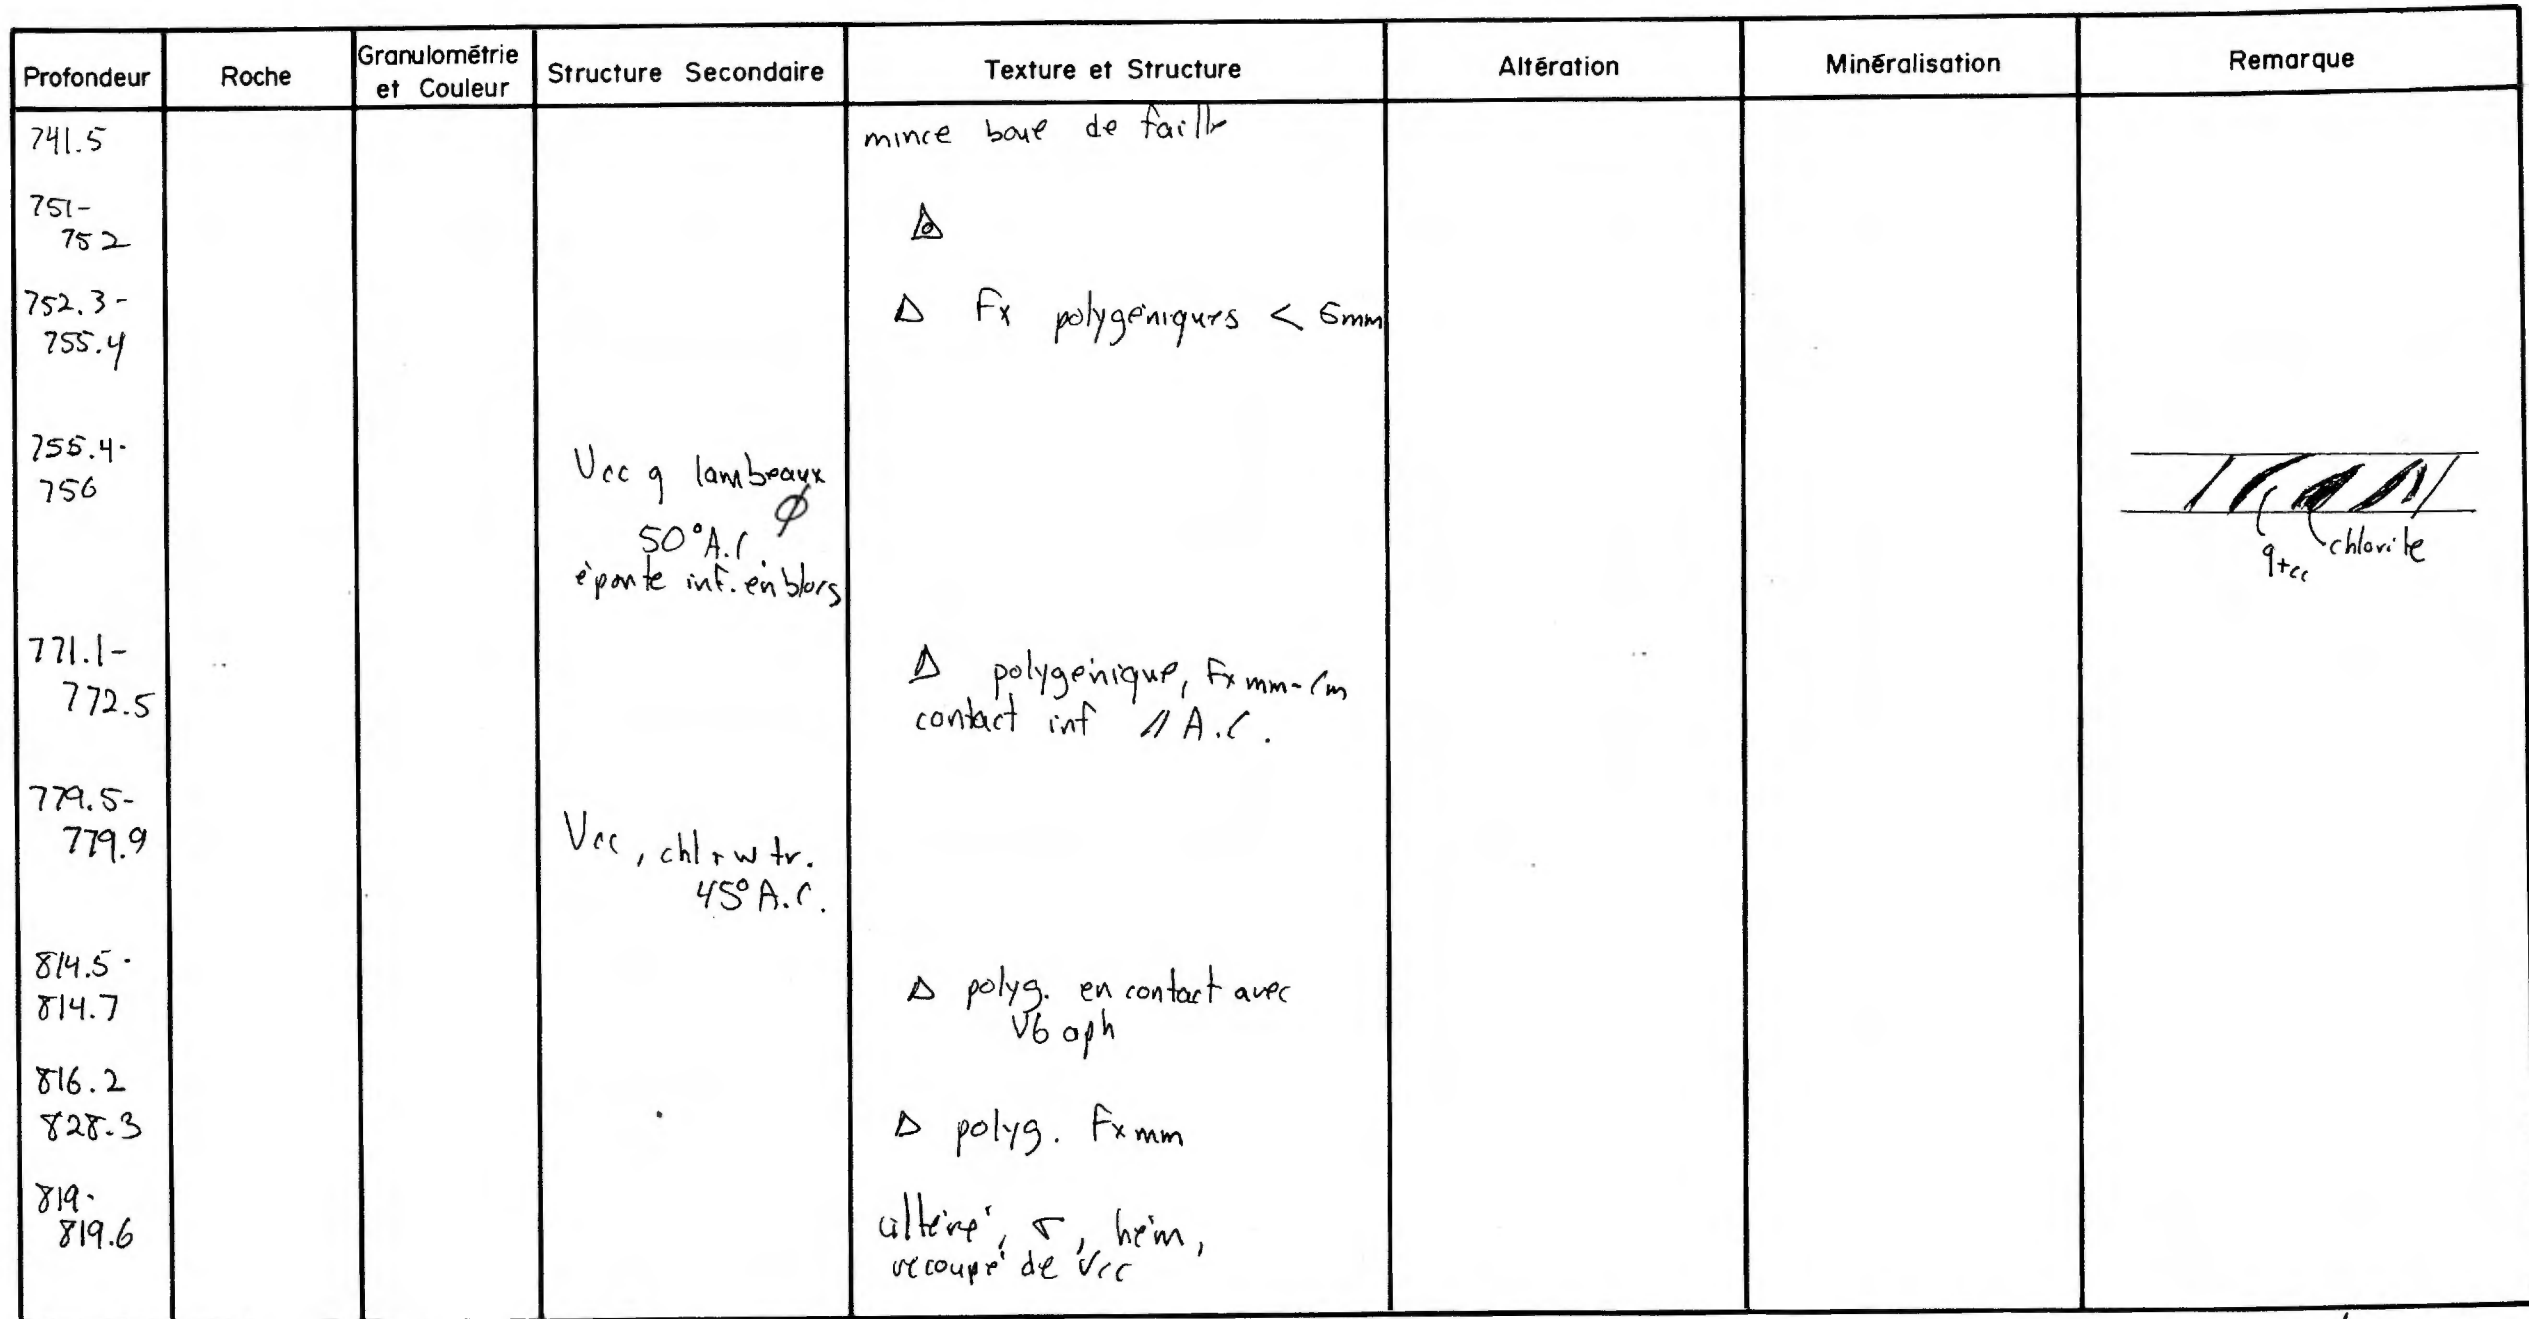 Profondeur Roche Granulométrie et Couleur Structure Secondaire Texture et Structure Altération Minéralisation Remarque
741.5 mince boue de faille
751-
752
752.3- Δ Fx polygéniques < 5mm
755.4
755.4- Vcc q lambeaux
756 φ
50° A.C
éponte inf. en blocs
q+cc chlorite
771.1- Δ polygénique, Fx mm-cm
772.5 contact inf // A.C.
779.5-
779.9 Vcc, chl + w tr.
45° A.C.
814.5- Δ polyg. en contact avec
814.7 V6 aph
816.2
828.3 Δ polyg. Fx mm
819- altéré, σ, hém,
819.6 recoupé de Vcc